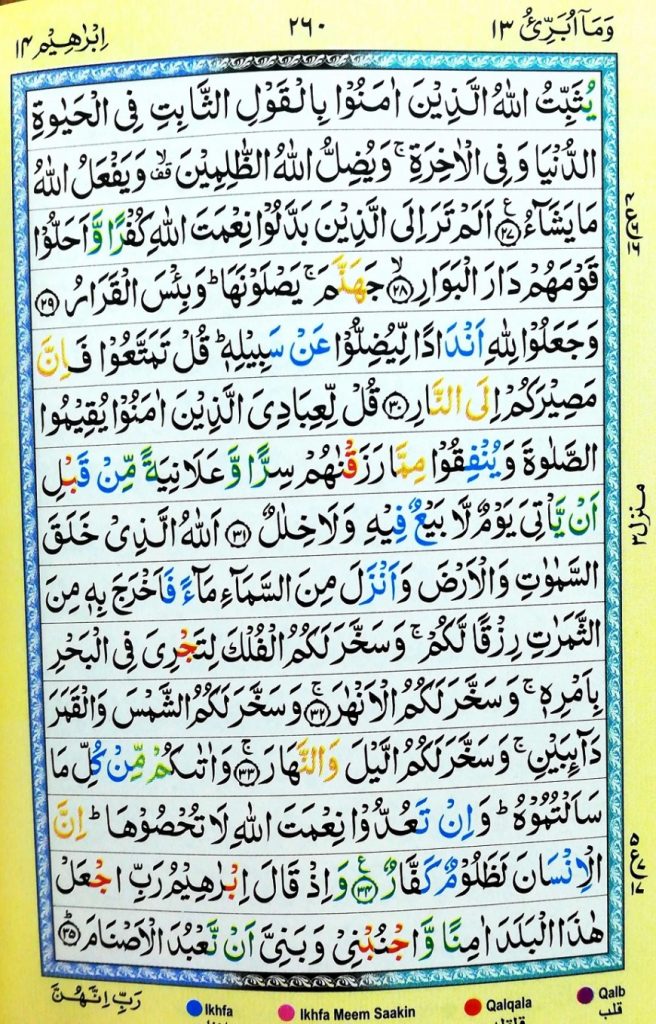 وَمَاۤ اُبَرِّئُ ۱۳
۲۶۰
اِبْرٰهِيْم ۱۴
يُثَبِّتُ اللّٰهُ الَّذِيْنَ اٰمَنُوْا بِالْقَوْلِ الثَّابِتِ فِى الْحَيٰوةِ
الدُّنْيَا وَفِى الْاٰخِرَةِ ۚ وَيُضِلُّ اللّٰهُ الظّٰلِمِيْنَ ۙ قف وَيَفْعَلُ اللّٰهُ
مَا يَشَآءُ ﴿۲۷﴾ ع اَلَمْ تَرَ اِلَى الَّذِيْنَ بَدَّلُوْا نِعْمَتَ اللّٰهِ كُفْرًا وَّاَحَلُّوْا
قَوْمَهُمْ دَارَ الْبَوَارِ ۙ﴿۲۸﴾ جَهَنَّمَ ۚ يَصْلَوْنَهَا ؕ وَبِئْسَ الْقَرَارُ ﴿۲۹﴾
وَجَعَلُوْا لِلّٰهِ اَنْدَادًا لِّيُضِلُّوْا عَنْ سَبِيْلِهٖ ؕ قُلْ تَمَتَّعُوْا فَاِنَّ
مَصِيْرَكُمْ اِلَى النَّارِ ﴿۳۰﴾ قُلْ لِّعِبَادِىَ الَّذِيْنَ اٰمَنُوْا يُقِيْمُوا
الصَّلٰوةَ وَيُنْفِقُوْا مِمَّا رَزَقْنٰهُمْ سِرًّا وَّعَلَانِيَةً مِّنْ قَبْلِ
اَنْ يَّاْتِىَ يَوْمٌ لَّا بَيْعٌ فِيْهِ وَلَا خِلٰلٌ ﴿۳۱﴾ اَللّٰهُ الَّذِىْ خَلَقَ
السَّمٰوٰتِ وَالْاَرْضَ وَاَنْزَلَ مِنَ السَّمَآءِ مَآءً فَاَخْرَجَ بِهٖ مِنَ
الثَّمَرٰتِ رِزْقًا لَّكُمْ ۚ وَسَخَّرَ لَكُمُ الْفُلْكَ لِتَجْرِىَ فِى الْبَحْرِ
بِاَمْرِهٖ ۚ وَسَخَّرَ لَكُمُ الْاَنْهٰرَ ۚ﴿۳۲﴾ وَسَخَّرَ لَكُمُ الشَّمْسَ وَالْقَمَرَ
دَآئِبَيْنِ ۚ وَسَخَّرَ لَكُمُ الَّيْلَ وَالنَّهَارَ ۚ﴿۳۳﴾ وَاٰتٰىكُمْ مِّنْ كُلِّ مَا
سَاَلْتُمُوْهُ ؕ وَاِنْ تَعُدُّوْا نِعْمَتَ اللّٰهِ لَا تُحْصُوْهَا ؕ اِنَّ
الْاِنْسَانَ لَظَلُوْمٌ كَفَّارٌ ﴿۳۴﴾ ع وَاِذْ قَالَ اِبْرٰهِيْمُ رَبِّ اجْعَلْ
هٰذَا الْبَلَدَ اٰمِنًا وَّاجْنُبْنِىْ وَبَنِىَّ اَنْ نَّعْبُدَ الْاَصْنَامَ ؕ﴿۳۵﴾
منزل ۳
رَبِّ اِنَّهُنَّ
Ikhfa
Ikhfa Meem Saakin
Qalqala
Qalb
قلب